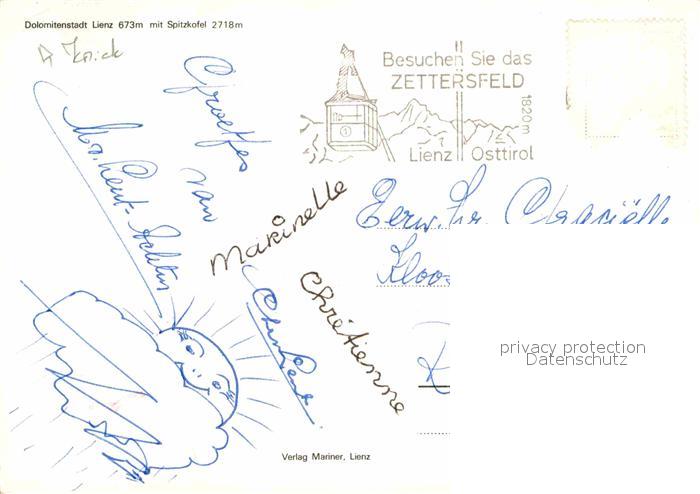 Dolomitenstadt Lienz 673m mit Spitzkofel 2718m
Knick
Besuchen Sie das
ZETTERSFELD
1820m
Lienz Osttirol
Groetjes
van
Marinelle
Chrétienne
Eerw. Zr.
Kloos
privacy protection
Datenschutz
Verlag Mariner, Lienz